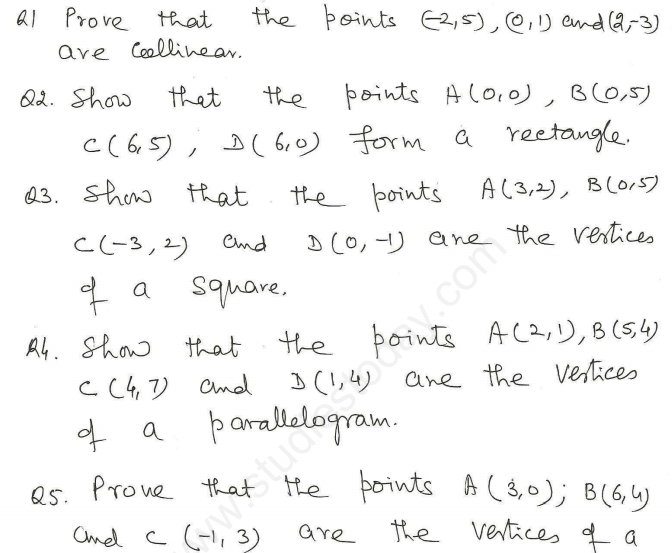 Q1 Prove that the points (-2,5), (0,1) and (2,-3)
are Collinear.
Q2. Show that the points A(0,0), B(0,5)
C(6,5), D(6,0) form a rectangle.
Q3. Show that the points A(3,2), B(0,5)
C(-3,2) and D(0,-1) are the vertices
of a square.
Q4. Show that the points A(2,1), B(5,4)
C(4,7) and D(1,4) are the vertices
of a parallelogram.
Q5. Prove that the points A(3,0); B(6,4)
and C(-1,3) are the vertices of a
www.studiestoday.com